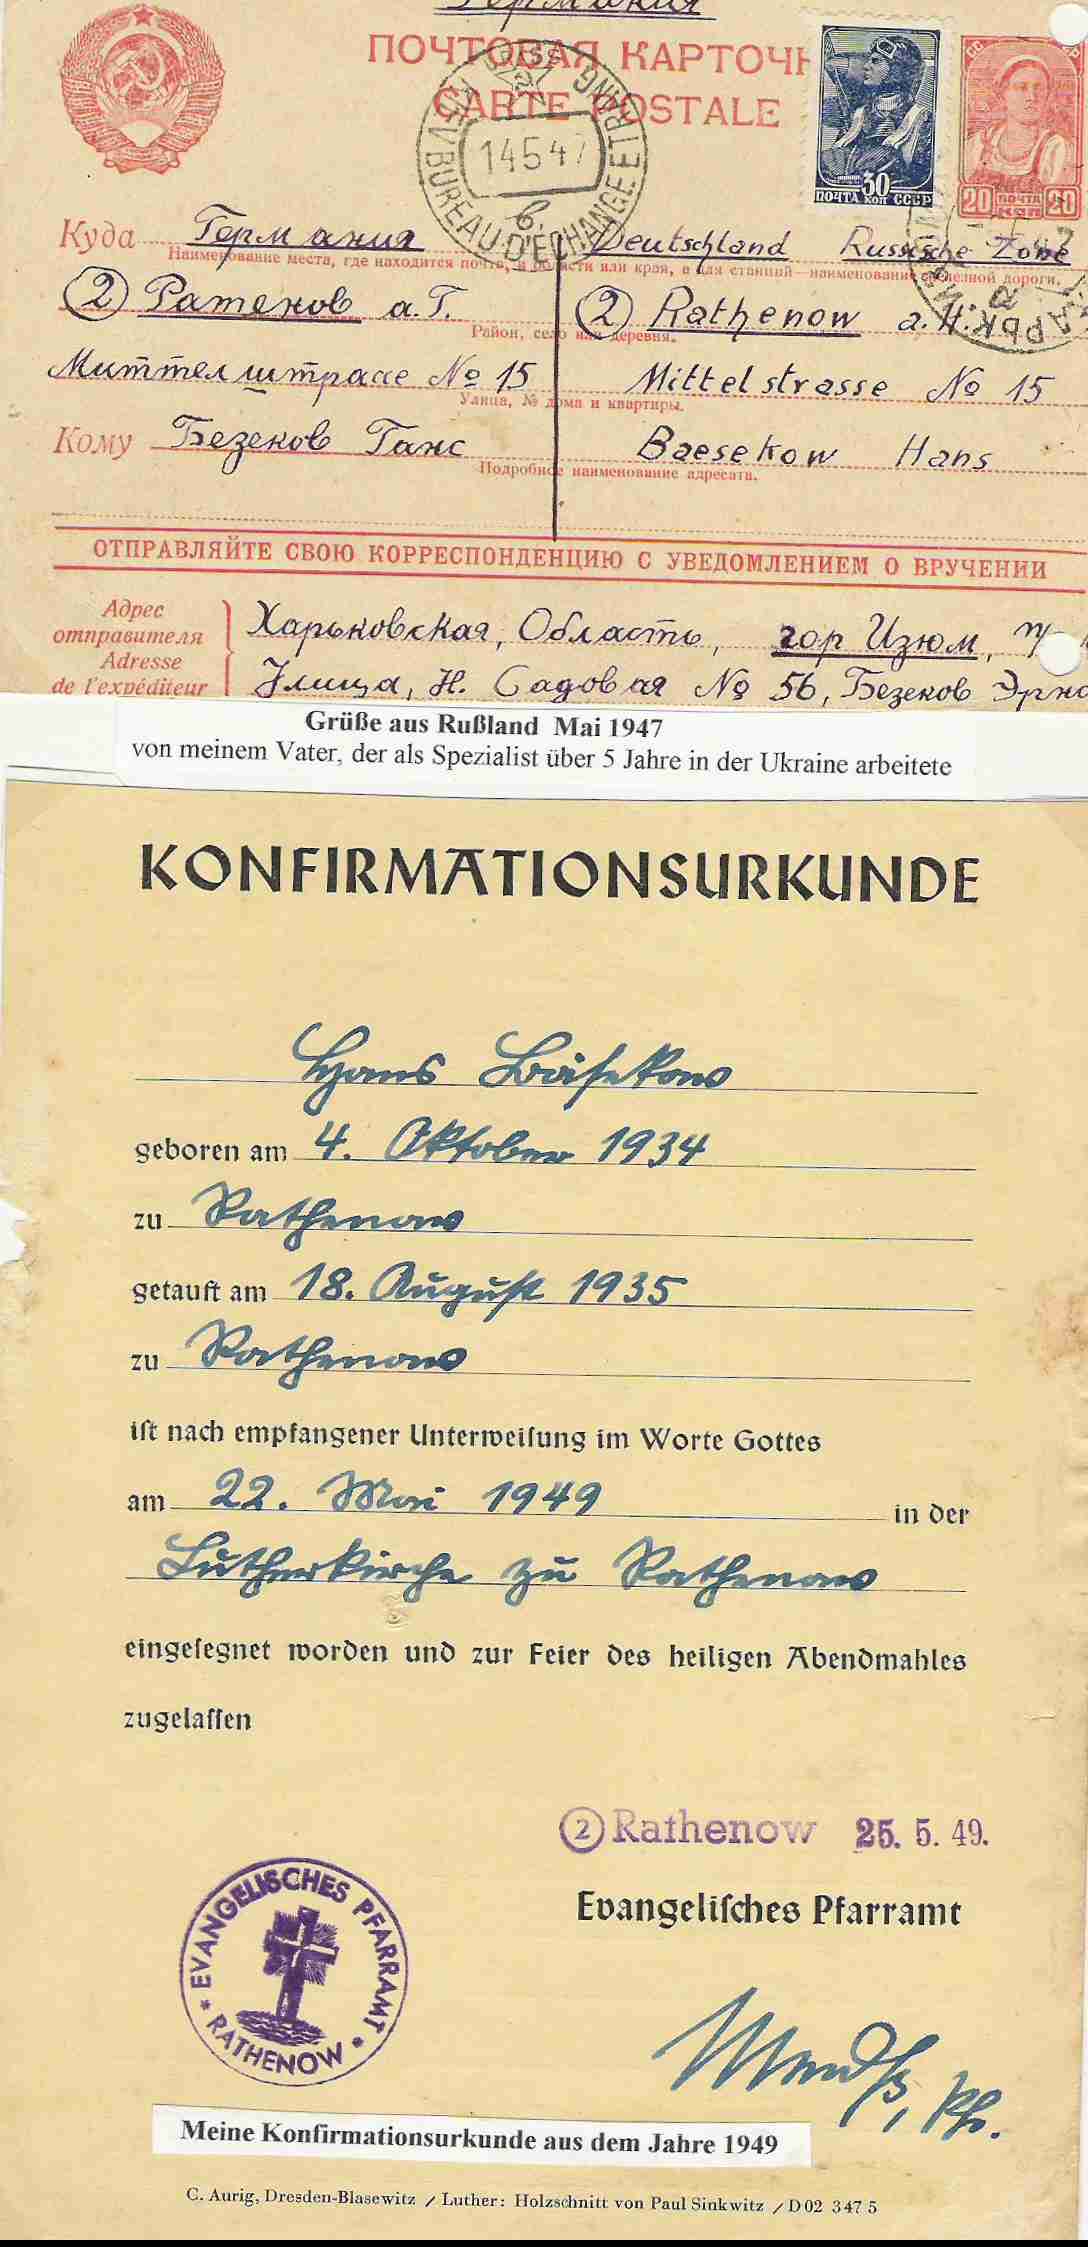 Германия
ПОЧТОВАЯ КАРТОЧ
CARTE POSTALE
KIEV BUREAU D'ECHANGE ETRANG
14 5 47
в
30
ПОЧТА коп СССР
20 ПОЧТА КОП 20
Куда Германия Deutschland Russische Zone
Наименование места, где находится почта, и области или края, а для станций—наименование железной дороги.
② Ратенов а. Г. ② Rathenow a. H.
Район, село или деревня.
Миттелштрассе № 15 Mittelstrasse № 15
Улица, № дома и квартиры.
Кому Безеков Ганс Baesekow Hans
Подробное наименование адресата.
ОТПРАВЛЯЙТЕ СВОЮ КОРРЕСПОНДЕНЦИЮ С УВЕДОМЛЕНИЕМ О ВРУЧЕНИИ
Адрес отправителя
Adresse de l'expéditeur
Харьковская, Область, гор Изюм,
Улица, Н. Садовая № 56, Безеков
Grüße aus Rußland Mai 1947
von meinem Vater, der als Spezialist über 5 Jahre in der Ukraine arbeitete
KONFIRMATIONSURKUNDE
Hans Bäsekow
geboren am 4. Oktober 1934
zu Rathenow
getauft am 18. August 1935
zu Rathenow
ist nach empfangener Unterweisung im Worte Gottes
am 22. Mai 1949 in der
Lutherkirche zu Rathenow
eingesegnet worden und zur Feier des heiligen Abendmahles
zugelassen
② Rathenow 25. 5. 49.
Evangelisches Pfarramt
EVANGELISCHES PFARRAMT
* RATHENOW *
Meine Konfirmationsurkunde aus dem Jahre 1949
C. Aurig, Dresden-Blasewitz / Luther: Holzschnitt von Paul Sinkwitz / D 02 347 5